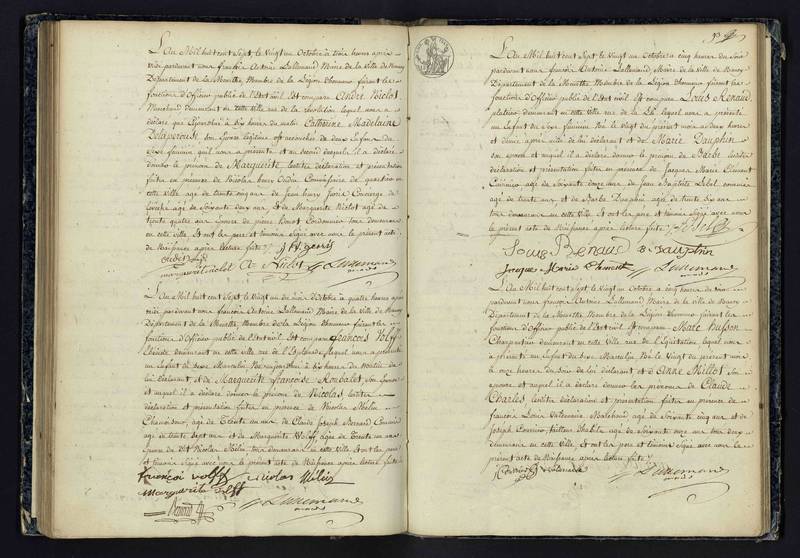 L'an Mil huit cent Sept, le Vingt un Octobre a trois heures après
midi pardevant nous françois Antoine Lallemand Maire de la Ville de Nancy
Département de la Meurthe, Membre de la Légion d'honneur faisant les
fonctions d'Officier public de l'Etat civil, Est comparu André Biclot
demeurant en cette ville rue de la laquel nous a
déclaré que a dix heures du matin Catherine Madelaine
Delaperouse son épouse légitime est accouchée de deux Enfans du
Sexe feminin qu'il nous a présenté et au second desquels il a déclaré
donner le prenom de Marguerite lesdites déclaration et présentation
faites en présence de Nicolas henry
cette ville agé de trente cinq ans de Jean henry Concierge de
agé de Soixante deux ans et de Marguerite Biclot agée de
trente quatre ans Epouse de pierre Cordonnier tous demeurant
en cette ville Et ont les pere et témoins Signé avec nous le present acte
de Naissance après lecture faite
L'an Mil huit cent Sept le Vingt un du mois d'Octobre à quatre heures après
midi pardevant nous françois Antoine Lallemand Maire de la Ville de Nancy
Département de la Meurthe, Membre de la Légion d'honneur faisant les
fonctions d'Officier public de l'Etat civil Est comparu françois Wolff
demeurant en cette ville rue de l'Esplanade lequel nous a présenté
un Enfant du Sexe Masculin Né aujourd'hui à dix heures du matin de
lui déclarant et de Marguerite françoise Roubalet son Epouse
et auquel il a déclaré donner le prénom de Nicolas lesdites
déclaration et présentation faites en présence de Nicolas Mélin
agé de Trente un ans de Claude Joseph Bernard
agé de trente Sept ans et de Marguerite Wolff, agée de Trente un ans
Epouse du dit Nicolas Mélin tous demeurant en cette ville Et ont les pere
et témoins signé avec nous le présent acte de Naissance après lecture faite
françois Wolff nicolas Mélin
marguerite Wolff
L'an Mil huit cent Sept le Vingt un Octobre a cinq heures du Soir
pardevant nous françois Antoine Lallemand, Maire de la Ville de Nancy
Département de la Meurthe, Membre de la Légion d'honneur faisant les
fonctions d'Officier public de l'Etat civil Est comparu Louis Renaud
plâtrier demeurant en cette Ville rue de la lequel nous a présenté
un Enfant du Sexe feminin Né le Vingt du présent mois au deux heures
et demie après midi de lui déclarant et de Marie Dauphin
son épouse et auquel il a déclaré donner le prénom de Barbe lesdites
déclaration et présentation faites en présence de Jacques Marie Clement
agé de Soixante douze ans de Jean Baptiste Lebel
agé de trente ans et de Barbe Dauphin agée de trente six ans
tous demeurant en cette ville Et ont les pere et témoins Signé avec nous
le présent acte de Naissance après lecture faite
Louis Renaud B Dauphin
Jacque Marie Clement
L'an Mil huit cent Sept le Vingt un Octobre a cinq heures du soir
pardevant nous françois Antoine Lallemand Maire de la Ville de Nancy
Département de la Meurthe, Membre de la Légion d'honneur faisant les
fonctions d'Officier public de l'Etat civil Est comparu Marc husson
Charpentier demeurant en cette Ville rue de l'Equitation lequel nous
a présenté un Enfant du Sexe Masculin Né le Vingt du présent mois
à onze heures du Soir de lui déclarant et d'Anne Millot Son
épouse et auquel il a déclaré donner les prénoms de Claude
Charles lesdites déclaration et présentation faites en présence de
françois Louis agé de Soixante cinq ans et de
Joseph tailleur d'habits agé de Soixante ans tous deux
demeurant en cette ville Et ont les pere et témoins Signé avec nous le
présent acte de Naissance après lecture faite